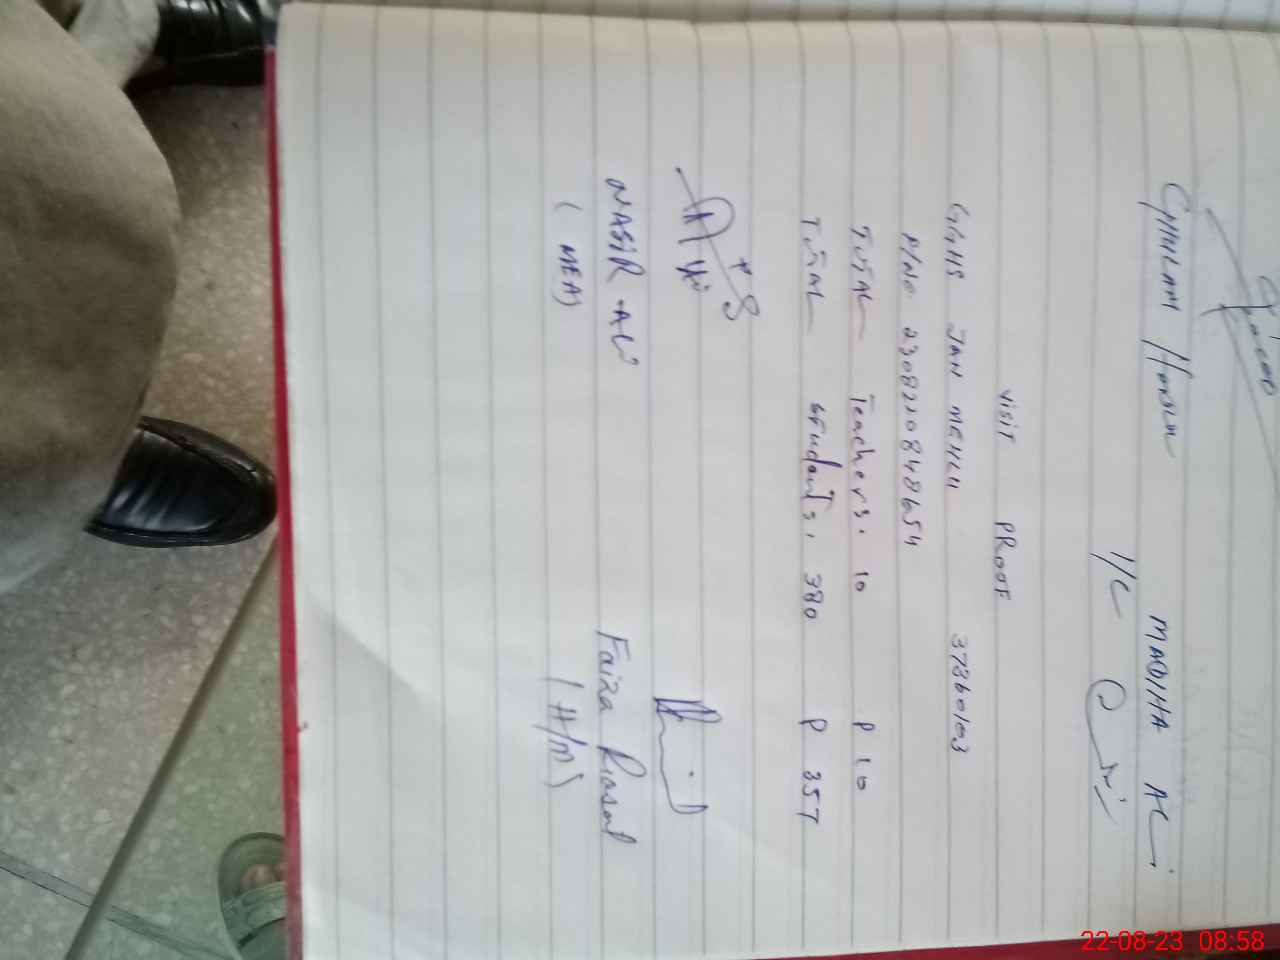 GHULAM
MADIHA ALi
I/C
VISIT PROOF
GGHS JAN MEHLU 37360103
P/No 2308220848654
TOTAL Teachers. 10 P 10
TOTAL students. 380 P 357
NASIR ALi Faiza Rasool
(MEA) (H/M)
22-08-23 08:58